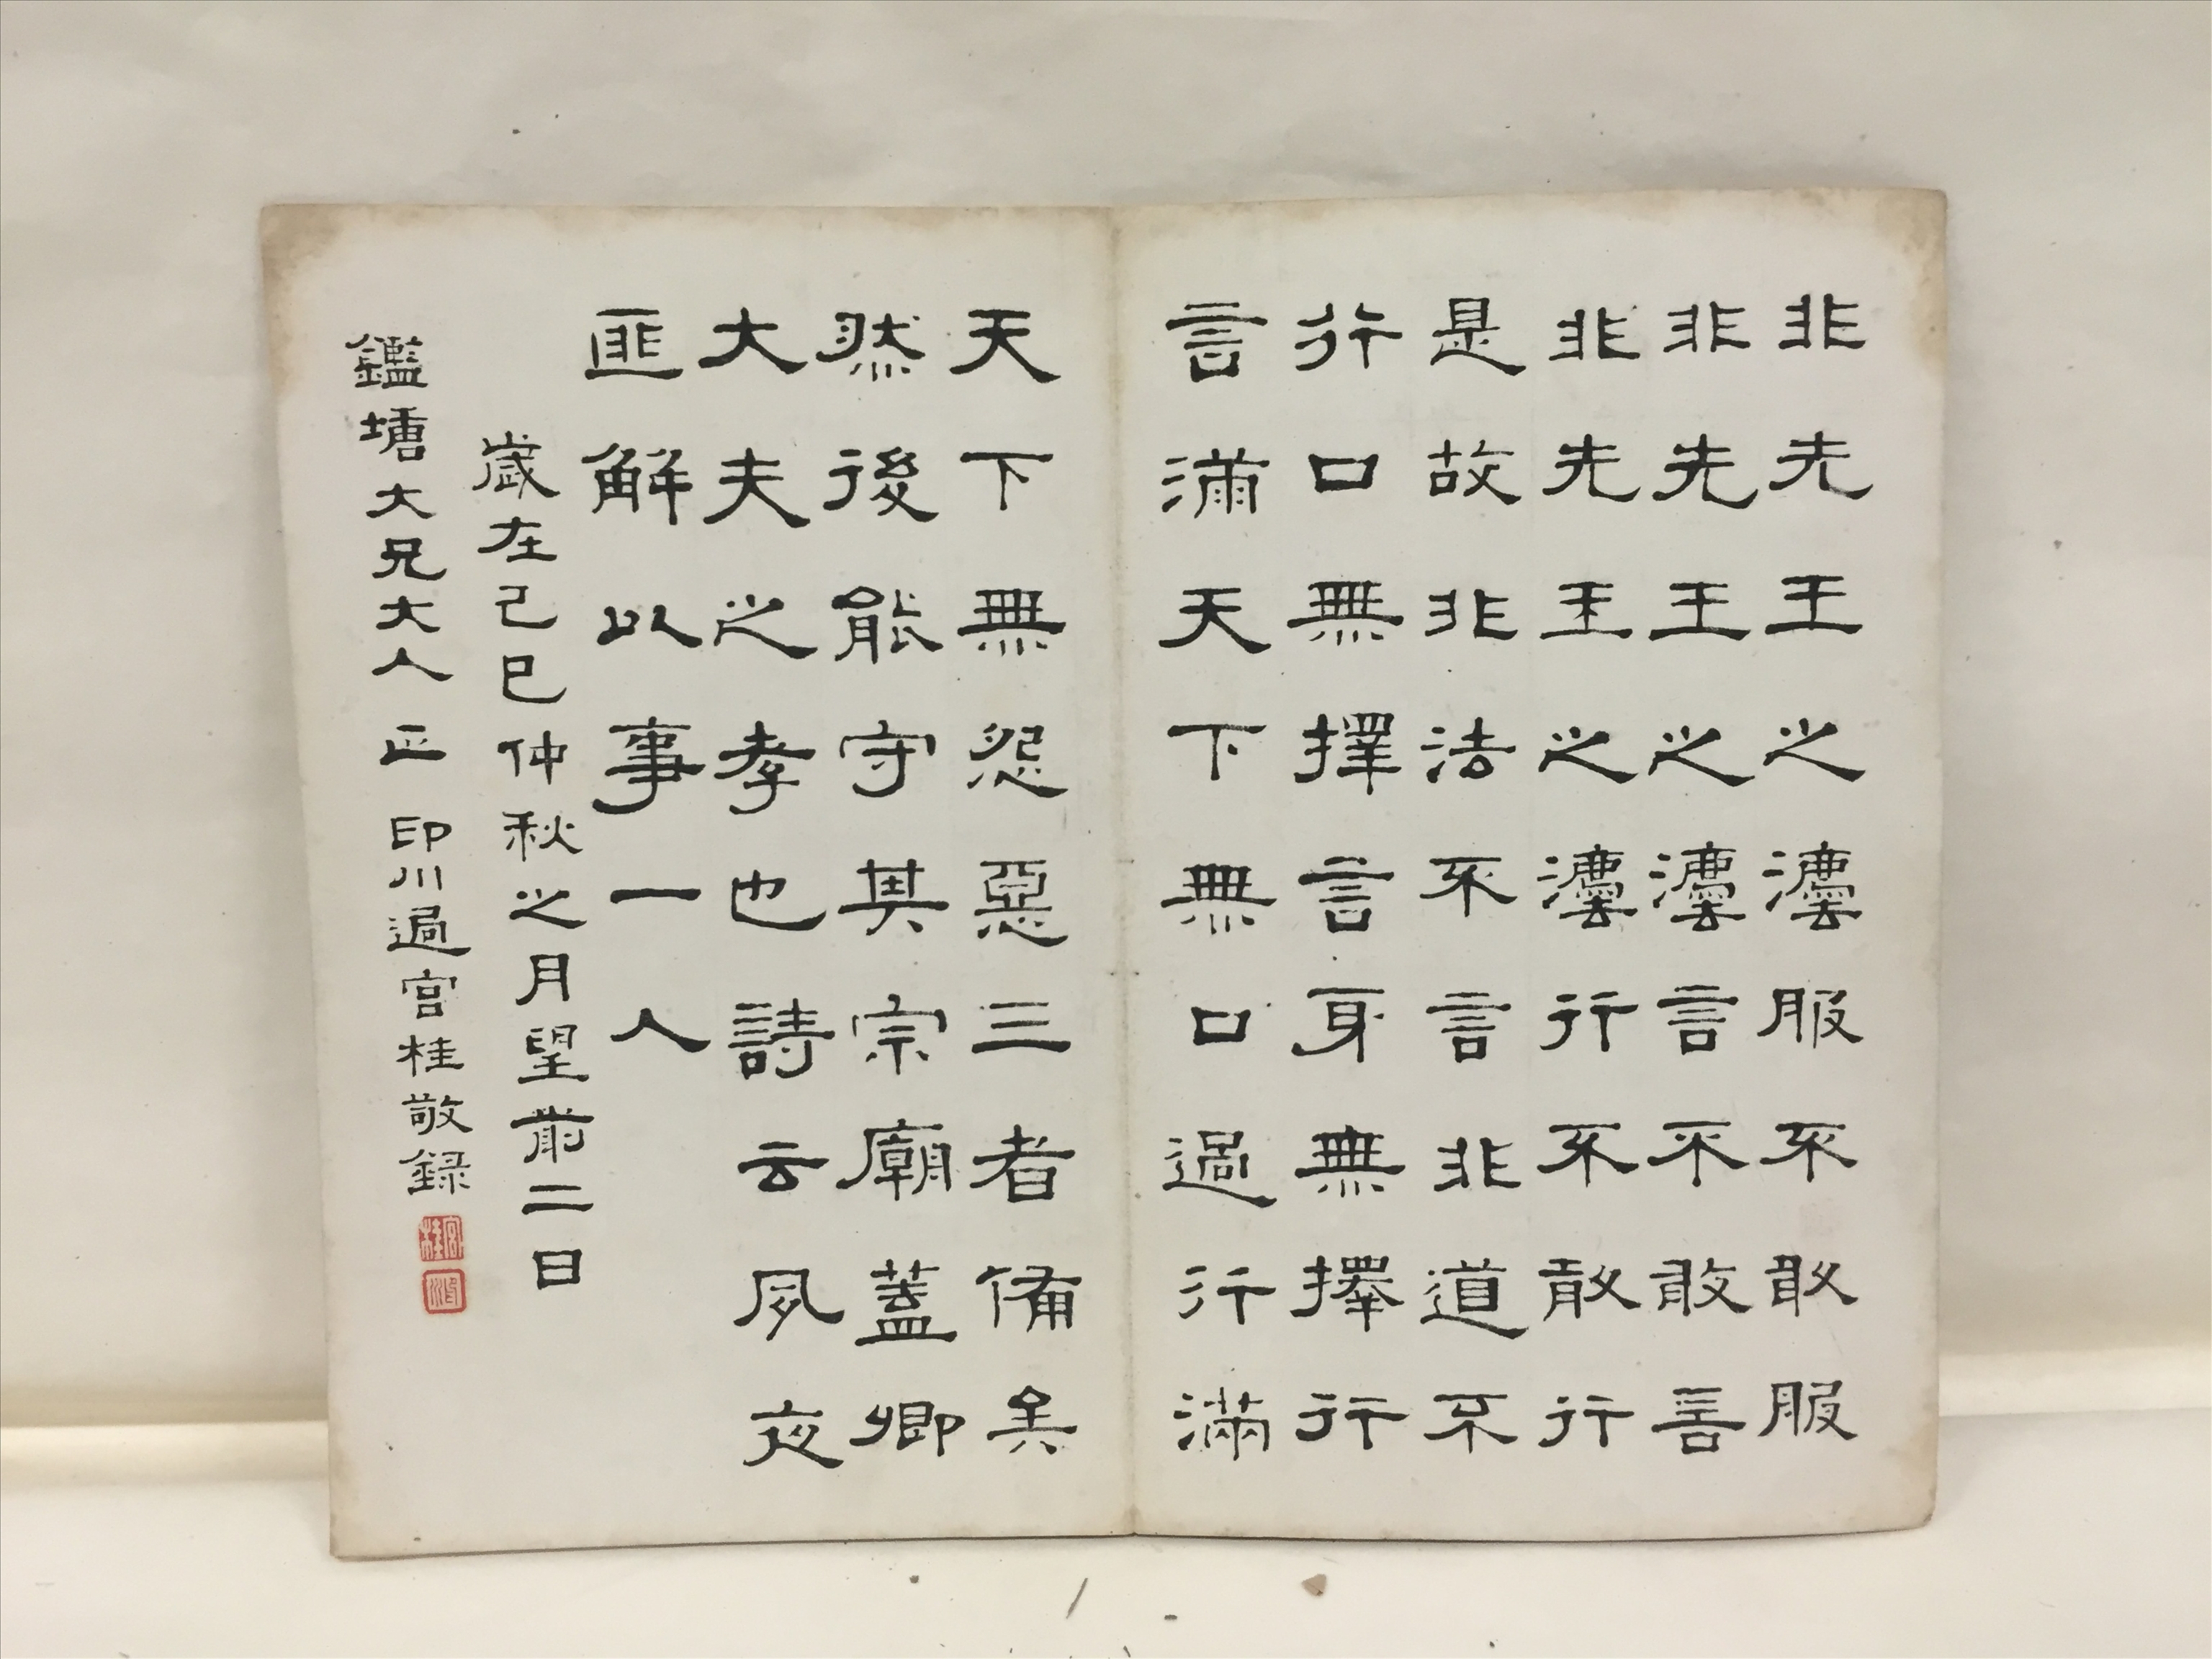 非先王之灋服不敢服
非先王之灋言不敢言
非先王之灋行不敢行
是故非法不言非道不
行口無擇言身無擇行
言滿天下無口過行滿
天下無怨惡三者備矣
然後能守其宗廟蓋卿
大夫之孝也詩云夙夜
匪解以事一人
歲在己巳仲秋之月望前二日
鑑塘大兄大人 正 印川過宮桂敬錄
宮桂
印川